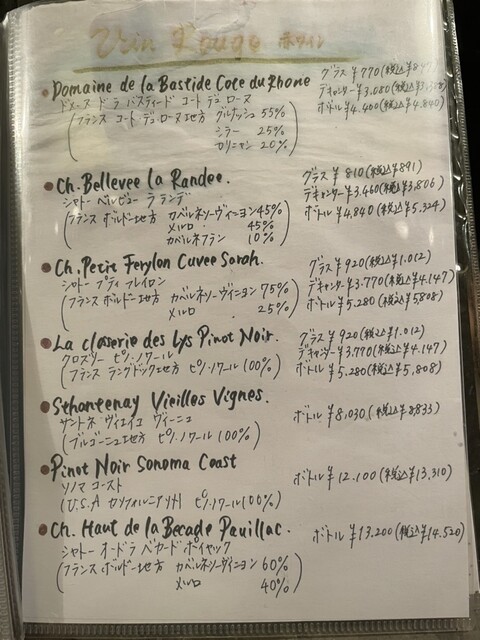 Vin Rouge 赤ワイン
Domaine de la Bastide Cote du Rhone グラス ¥770(税込¥847)
ドメーヌ ド ラ バスティード コート デュ ローヌ デキャンター ¥3,080(税込¥3,388)
(フランス コート デュ ローヌ地方 グルナッシュ 55% ボトル ¥4,400(税込¥4,840)
シラー 25%
カリニャン 20%)
Ch. Bellevee la Randee. グラス ¥810(税込¥891)
シャトー ベルビュー ラランデ デキャンター ¥3,460(税込¥3,806)
(フランス ボルドー地方 カベルネソーヴィニヨン45% ボトル ¥4,840(税込¥5,324)
メルロ 45%
カベルネフラン 10%)
Ch. Petit Ferylon Cuvee Sarah. グラス ¥920(税込¥1,012)
シャトー プティ フレイロン デキャンター ¥3,770(税込¥4,147)
(フランス ボルドー地方 カベルネソーヴィニヨン 75% ボトル ¥5,280(税込¥5,808)
メルロ 25%)
La closerie des Lys Pinot Noir. グラス ¥920(税込¥1,012)
クロズリー ピノ・ノワール デキャンター ¥3,770(税込¥4,147)
(フランス ラングドック地方 ピノ・ノワール 100%) ボトル ¥5,280(税込¥5,808)
Sthantenay Vieilles Vignes. ボトル ¥8,030(税込¥8,833)
サントネ ヴィエイユ ヴィーニュ
(ブルゴーニュ地方 ピノ・ノワール 100%)
Pinot Noir Sonoma Coast ボトル ¥12,100(税込¥13,310)
ソノマ コースト
(U.S.A カリフォルニア州 ピノ・ノワール100%)
Ch. Haut de la Becade Pauillac. ボトル ¥13,200(税込¥14,520)
シャトー オー ド ラ ベカード ポイヤック
(フランス ボルドー地方 カベルネソーヴィニヨン 60%
メルロ 40%)